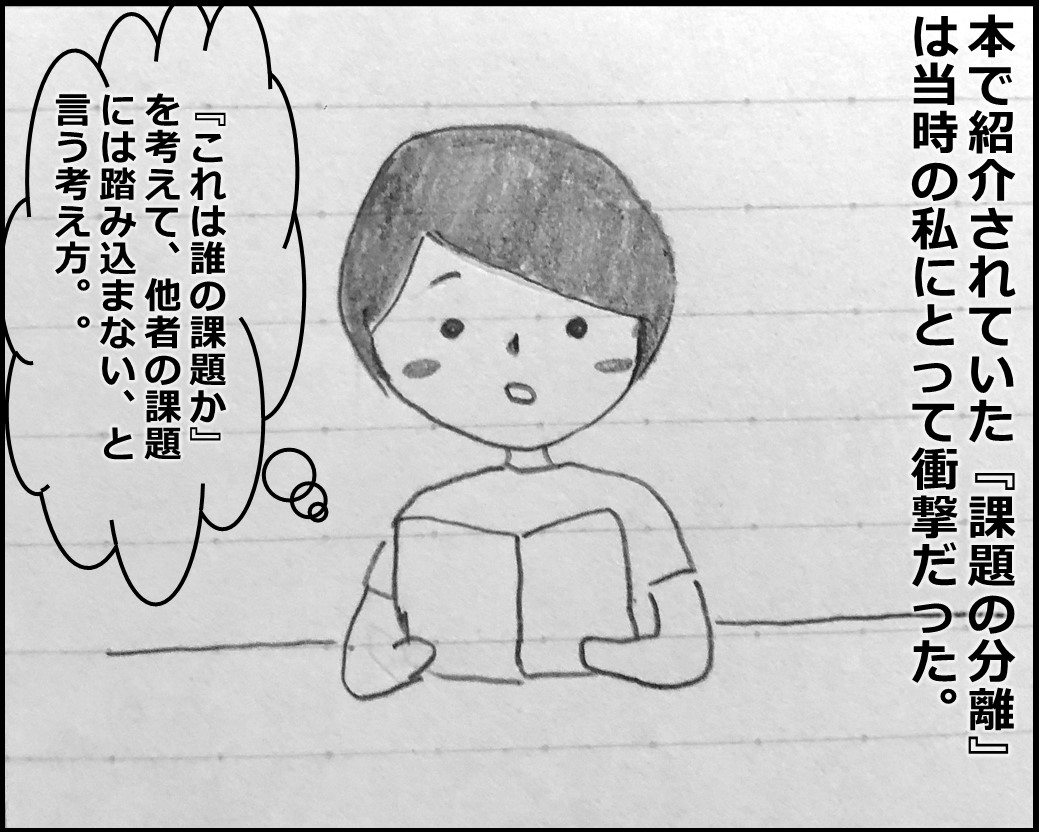 本で紹介されていた『課題の分離』
は当時の私にとって衝撃だった。
『これは誰の課題か』
を考えて、他者の課題
には踏み込まない、と
言う考え方。。